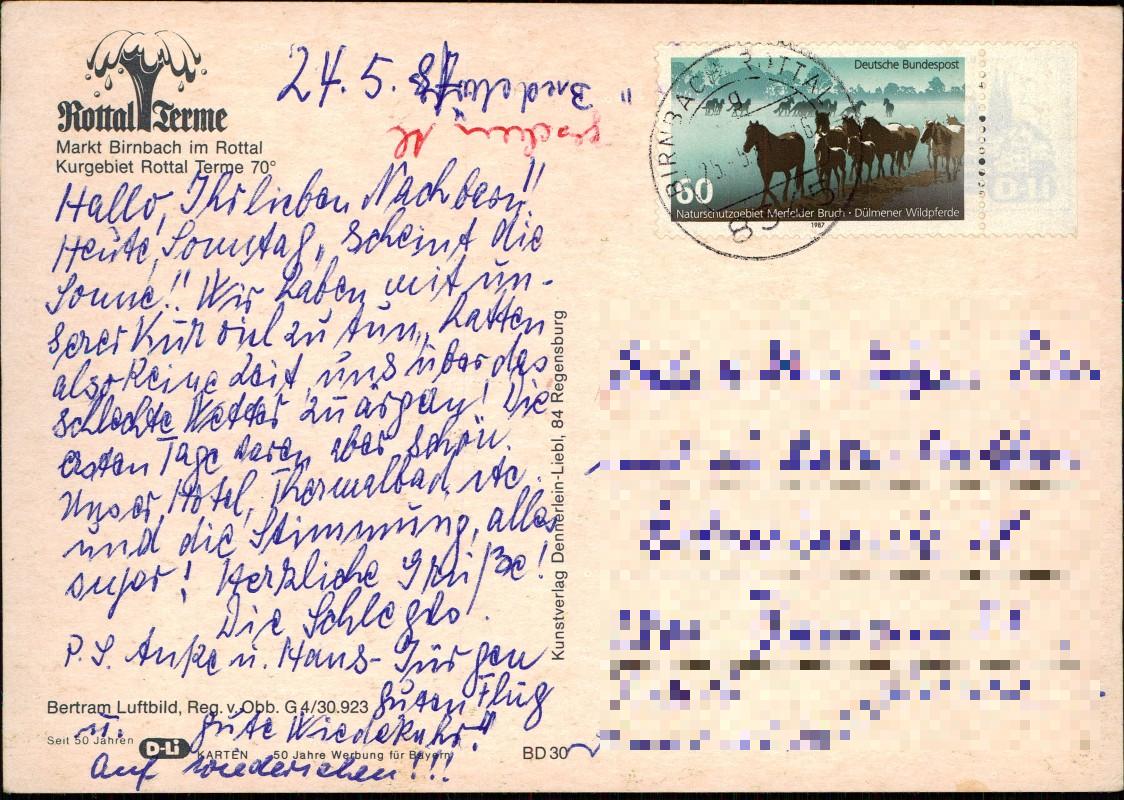 Rottal Terme
Markt Birnbach im Rottal
Kurgebiet Rottal Terme 70°
24. 5. 87
Hallo, Ihr lieben Nachbarn!!
Heute, Sonntag, scheint die
Sonne!! Wir haben mit un-
serer Kur viel zu tun, hatten
also keine Zeit, uns über das
schlechte Wetter zu ärgern! Die
ersten Tage waren aber schön.
Unser Hotel, Thermalbad, etc.
und die Stimmung, alles
super! Herzliche Grüße!
Die Schlegels.
P.S. Anke u. Hans-Jürgen
guten Flug
u. gute Wiederkehr!!
Auf Wiedersehen!!!
Bertram Luftbild, Reg. v. Obb. G 4/30.923
Seit 50 Jahren D-Li KARTEN 50 Jahre Werbung für Bayern
BD 30
Kunstverlag Dennerlein-Liebl, 84 Regensburg
Deutsche Bundespost
60
Naturschutzgebiet Merfelder Bruch · Dülmener Wildpferde
1987
BIRNBACH ROTTAL